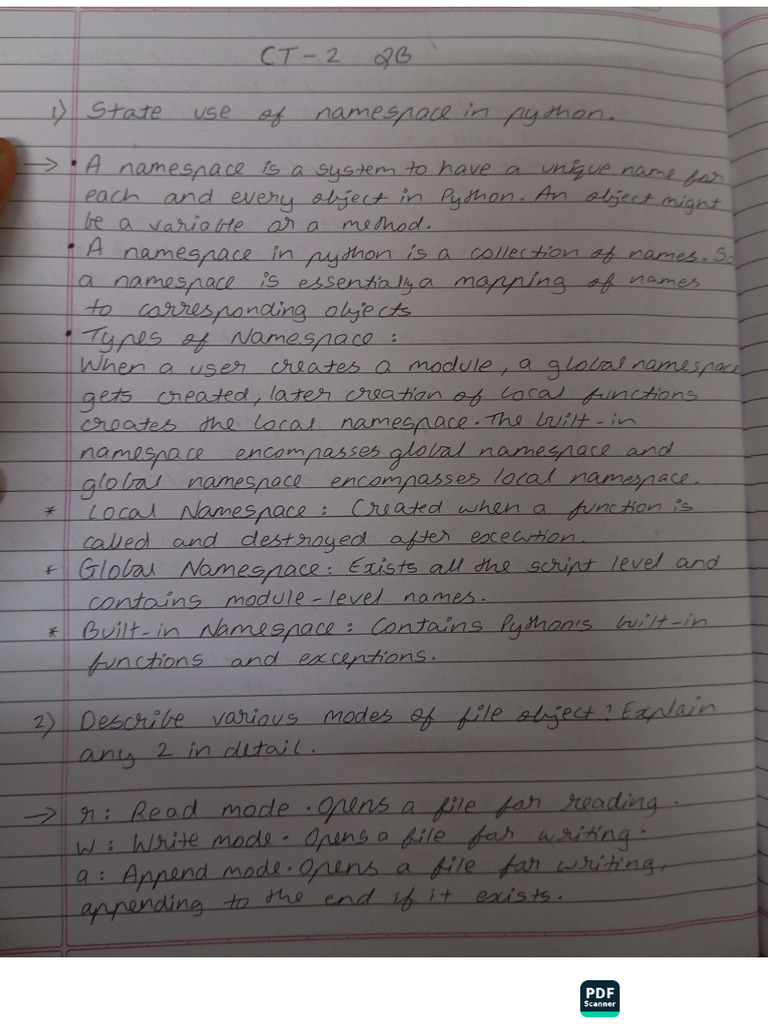 CT-2 QB
1) State use of namespace in python.
→ • A namespace is a system to have a unique name for
each and every object in Python. An object might
be a variable or a method.
• A namespace in python is a collection of names. So
a namespace is essentially a mapping of names
to corresponding objects
• Types of Namespace :
When a user creates a module, a global namespace
gets created, later creation of local functions
creates the local namespace. The built-in
namespace encompasses global namespace and
global namespace encompasses local namespace.
* Local Namespace : Created when a function is
called and destroyed after execution.
* Global Namespace : Exists all the script level and
contains module-level names.
* Built-in Namespace : Contains Python's built-in
functions and exceptions.
2) Describe various modes of file object? Explain
any 2 in detail.
→ r : Read mode. Opens a file for reading.
w : Write mode. Opens a file for writing.
a : Append mode. Opens a file for writing,
appending to the end if it exists.
PDF
Scanner